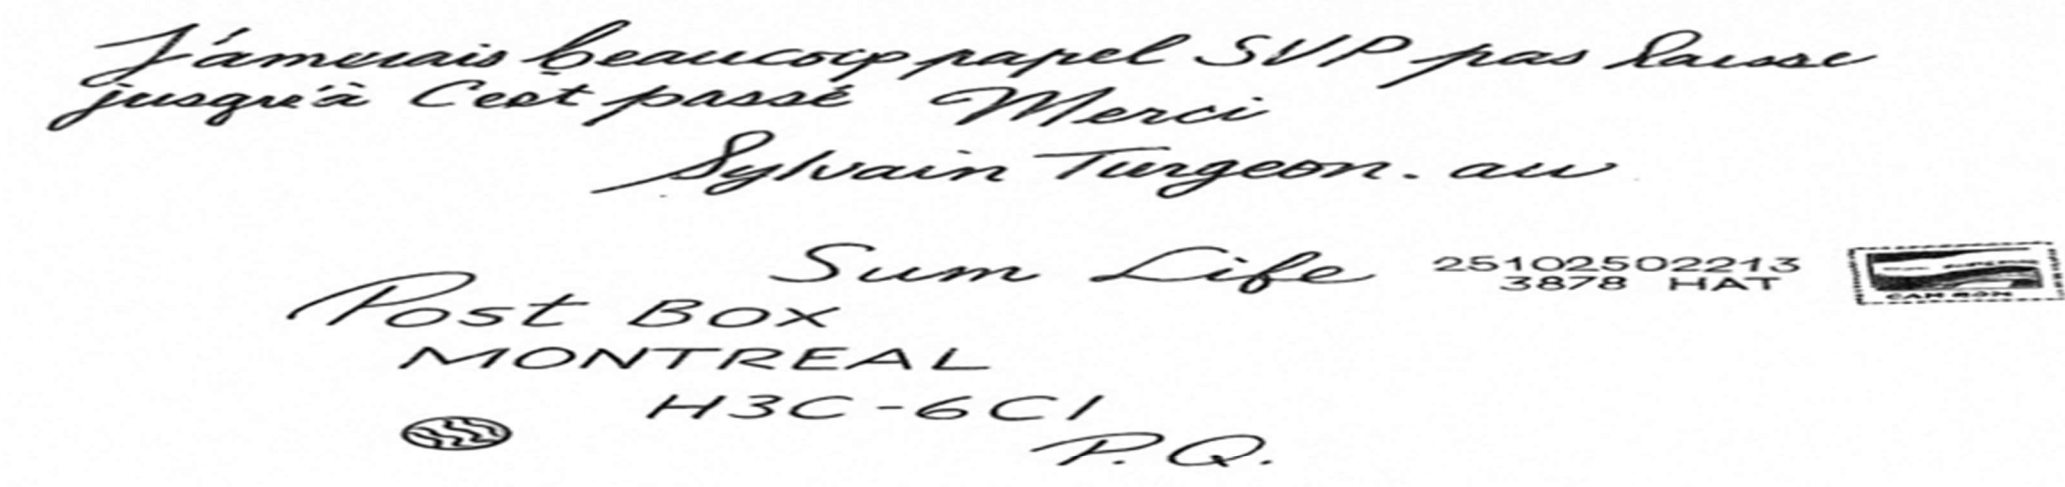 J'amerais beaucoup papel SVP pas laisse
jusqu'à C'est passé Merci
Sylvain Turgeon. au
Sum Life
25102502213
3878 HAT
Post Box
MONTREAL
H3C-6C1
P.Q.